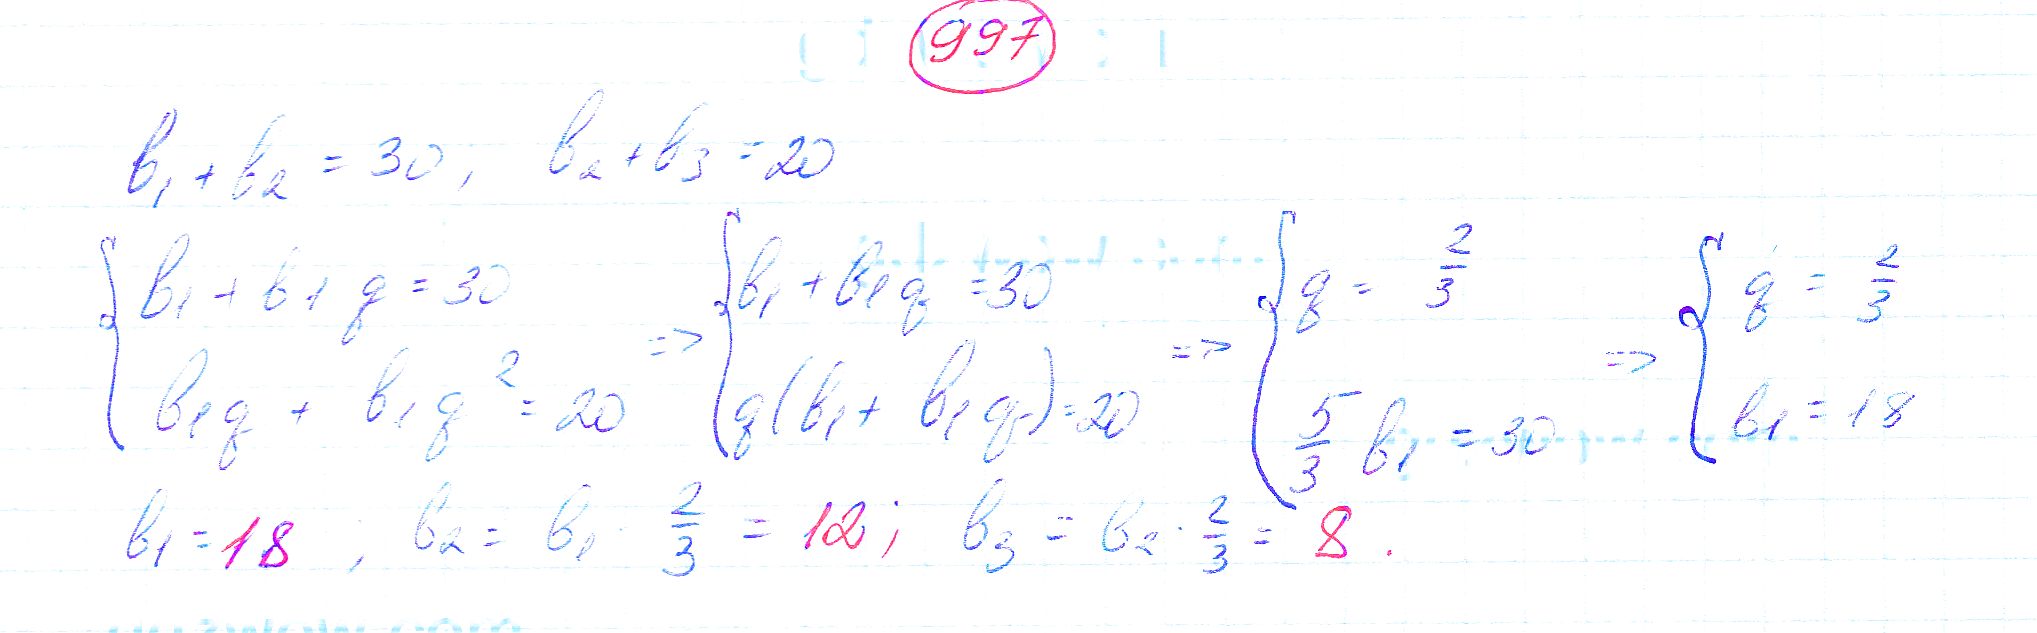 997
b₁ + b₂ = 30, b₂ + b₃ = 20
{ b₁ + b₁q = 30 => { b₁ + b₁q = 30 => { q = 2/3 => { q = 2/3
{ b₁q + b₁q² = 20 { q(b₁ + b₁q) = 20 { 5/3 b₁ = 30 { b₁ = 18
b₁ = 18 ; b₂ = b₁ · 2/3 = 12; b₃ = b₂ · 2/3 = 8.